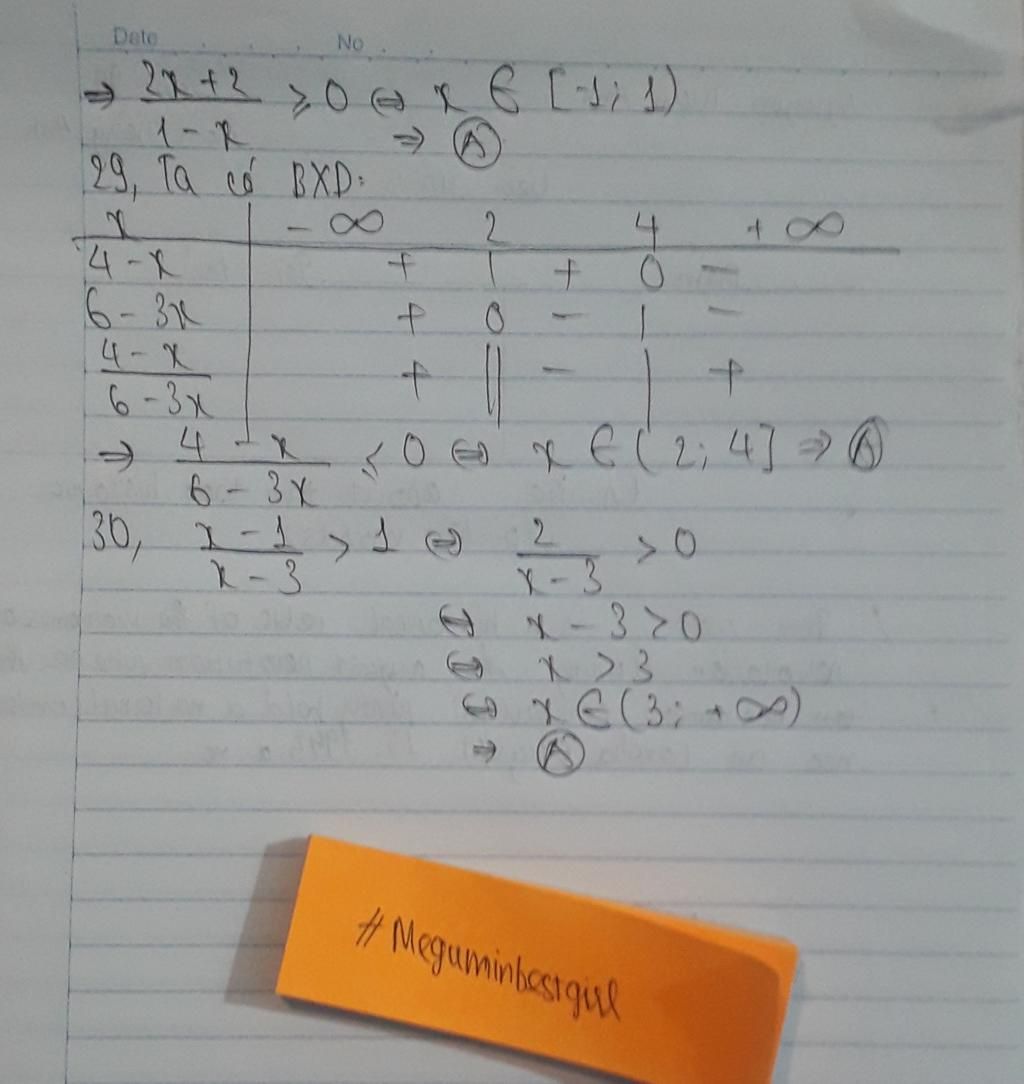 Date No
⇒ (2x+2)/(1-x) ≥ 0 ⇔ x ∈ [-1; 1)
⇒ Ⓐ
29, Ta có BXD:
x | -∞ 2 4 +∞
4-x | + | + 0 -
6-3x | + 0 - | -
(4-x)/(6-3x) | + || - | +
⇒ (4-x)/(6-3x) ≤ 0 ⇔ x ∈ (2; 4] ⇒ Ⓐ
30, (x-1)/(x-3) > 1 ⇔ 2/(x-3) > 0
⇔ x-3 > 0
⇔ x > 3
⇔ x ∈ (3; +∞)
⇒ Ⓐ
#Meguminbestgirl